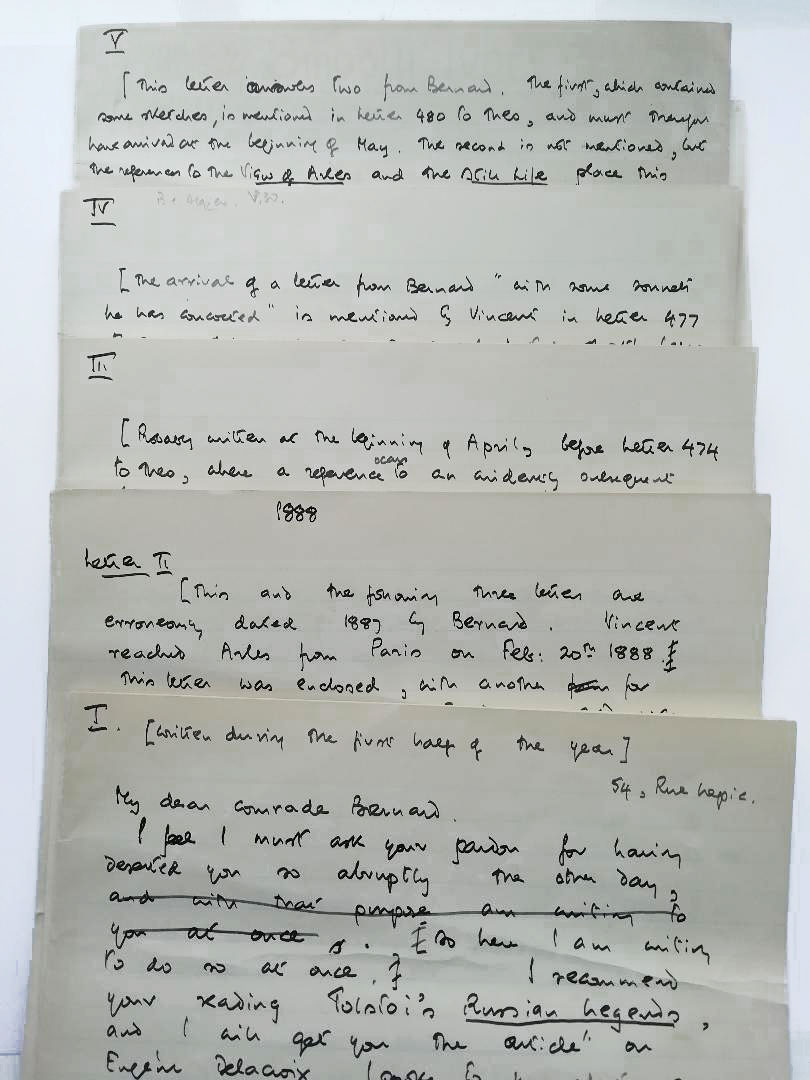 V
[This letter answers two from Bernard. The first, which contained
some sketches, is mentioned in Letter 480 to Theo, and must therefore
have arrived at the beginning of May. The second is not mentioned, but
the references to the View of Arles and the Still Life place this
IV
[The arrival of a letter from Bernard "with some sonnets
he has concocted" is mentioned by Vincent in Letter 477
III
[Probably written at the beginning of April, before Letter 474
occurs
to Theo, where a reference to an evidently subsequent
1888
Letter II
[This and the following three letters are
erroneously dated 1887 by Bernard. Vincent
reached Arles from Paris on Feb: 20th 1888.]
This letter was enclosed, with another for
I. [Written during the first half of the year]
54, Rue Lepic.
My dear comrade Bernard.
I feel I must ask your pardon for having
deserted you so abruptly the other day,
and with that purpose am writing to
you at once. [so here I am writing
to do so at once.] I recommend
your reading Tolstoi's Russian Legends,
and I will get you the article on
Eugène Delacroix